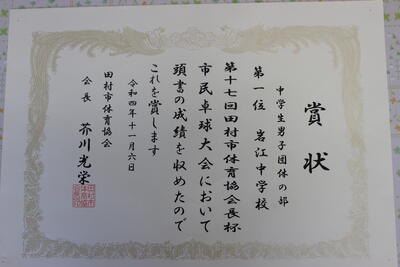 賞状
中学生男子団体の部
第一位 岩江中学校
第十七回田村市体育協会長杯
市民卓球大会において
頭書の成績を収めたので
これを賞します
令和四年十一月六日
田村市体育協会
会長 芥川光栄